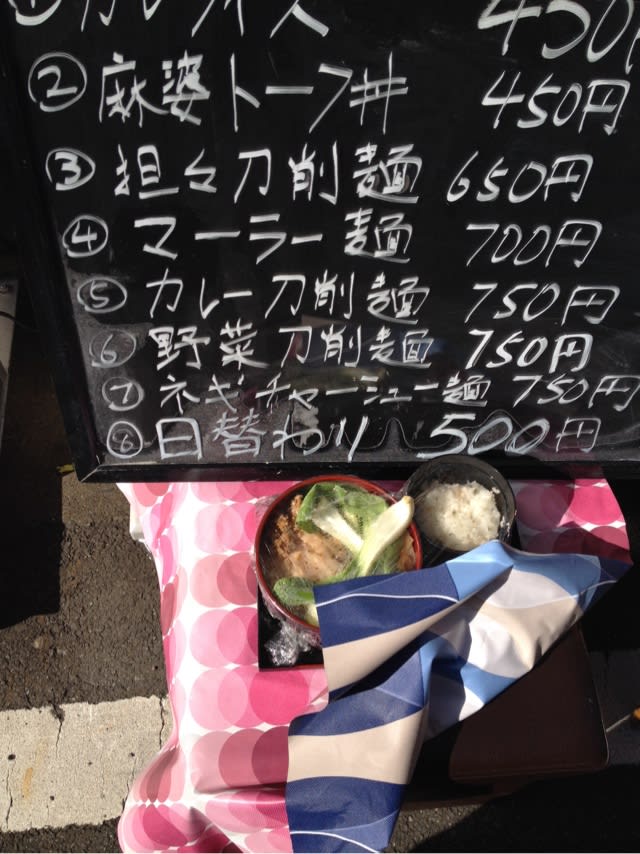 ①カレーライス 450円
②麻婆トーフ丼 450円
③担々刀削麺 650円
④マーラー麺 700円
⑤カレー刀削麺 750円
⑥野菜刀削麺 750円
⑦ネギチャーシュー麺 750円
⑧日替わり 500円